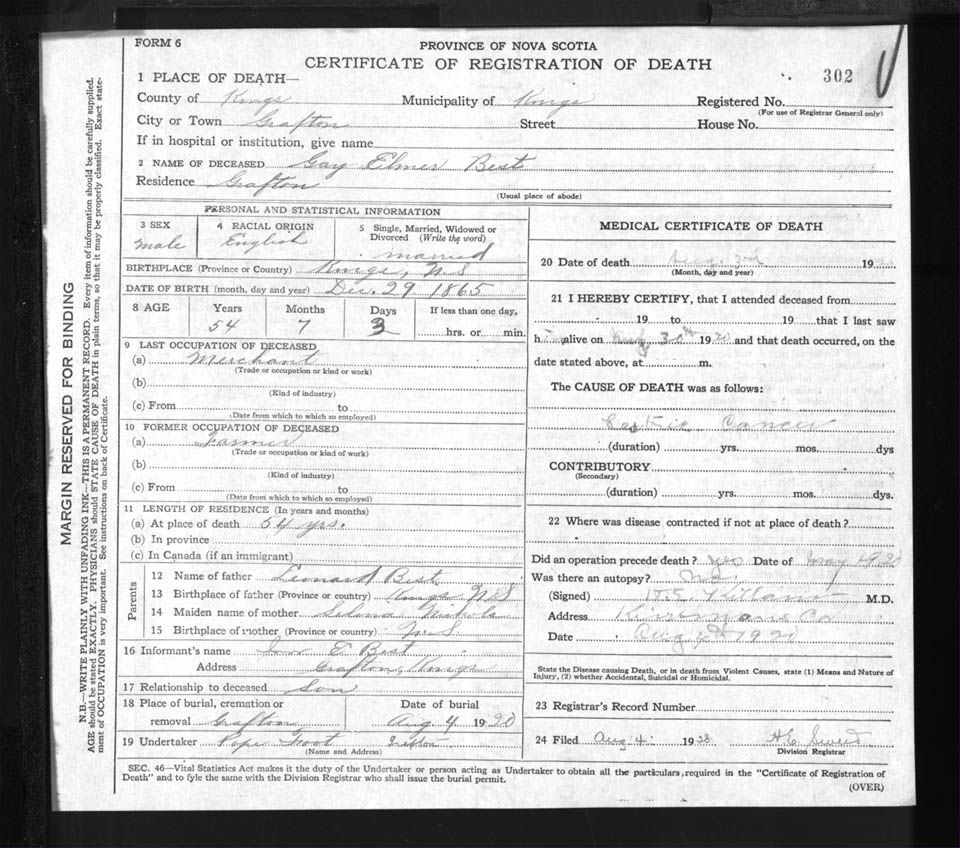 FORM 6
PROVINCE OF NOVA SCOTIA
CERTIFICATE OF REGISTRATION OF DEATH
302
1 PLACE OF DEATH—
County of Kings Municipality of Kings Registered No.
(For use of Registrar General only)
City or Town Grafton Street House No.
If in hospital or institution, give name
2 NAME OF DECEASED Gay Elmer Best
Residence Grafton
(Usual place of abode)
PERSONAL AND STATISTICAL INFORMATION
3 SEX male
4 RACIAL ORIGIN English
5 Single, Married, Widowed or Divorced (Write the word) married
BIRTHPLACE (Province or Country) Kings, N S
DATE OF BIRTH (month, day and year) Dec. 29 1865
8 AGE Years Months Days If less than one day,
54 7 3 hrs. or min.
9 LAST OCCUPATION OF DECEASED
(a) Merchant
(Trade or occupation or kind or work)
(b)
(Kind of industry)
(c) From to
(Date from which to which so employed)
10 FORMER OCCUPATION OF DECEASED
(a) Farmer
(Trade or occupation or kind of work)
(b)
(Kind of industry)
(c) From to
(Date from which to which so employed)
11 LENGTH OF RESIDENCE (In years and months)
(a) At place of death 54 yrs.
(b) In province
(c) In Canada (if an immigrant)
Parents
12 Name of father Leonard Best
13 Birthplace of father (Province or country) Kings N S
14 Maiden name of mother
15 Birthplace of mother (Province or country) N S
16 Informant's name E Best
Address Grafton, Kings
17 Relationship to deceased Son
18 Place of burial, cremation or removal Grafton
Date of burial Aug 4 1920
19 Undertaker Pope Foot Grafton
(Name and Address)
MEDICAL CERTIFICATE OF DEATH
20 Date of death 19
(Month, day and year)
21 I HEREBY CERTIFY, that I attended deceased from
19 to 19 that I last saw
h alive on 30th 1920 and that death occurred, on the
date stated above, at m.
The CAUSE OF DEATH was as follows:
Gastric Cancer
(duration) yrs. mos. dys
CONTRIBUTORY
(Secondary)
(duration) yrs. mos. dys.
22 Where was disease contracted if not at place of death?
Did an operation precede death? yes Date of May 1920
Was there an autopsy? No
(Signed) M.D.
Address
Date Aug 1920
State the Disease causing Death, or in death from Violent Causes, state (1) Means and Nature of
Injury, (2) whether Accidental, Suicidal or Homicidal.
23 Registrar's Record Number
24 Filed Aug 4 19
Division Registrar
SEC. 46—Vital Statistics Act makes it the duty of the Undertaker or person acting as Undertaker to obtain all the particulars, required in the "Certificate of Registration of
Death" and to fyle the same with the Division Registrar who shall issue the burial permit.
(OVER)
MARGIN RESERVED FOR BINDING
N.B.—WRITE PLAINLY WITH UNFADING INK—THIS IS A PERMANENT RECORD. Every item of information should be carefully supplied.
AGE should be stated EXACTLY. PHYSICIANS should STATE CAUSE OF DEATH in plain terms, so that it may be properly classified. Exact state-
ment of OCCUPATION is very important. See instructions on back of Certificate.